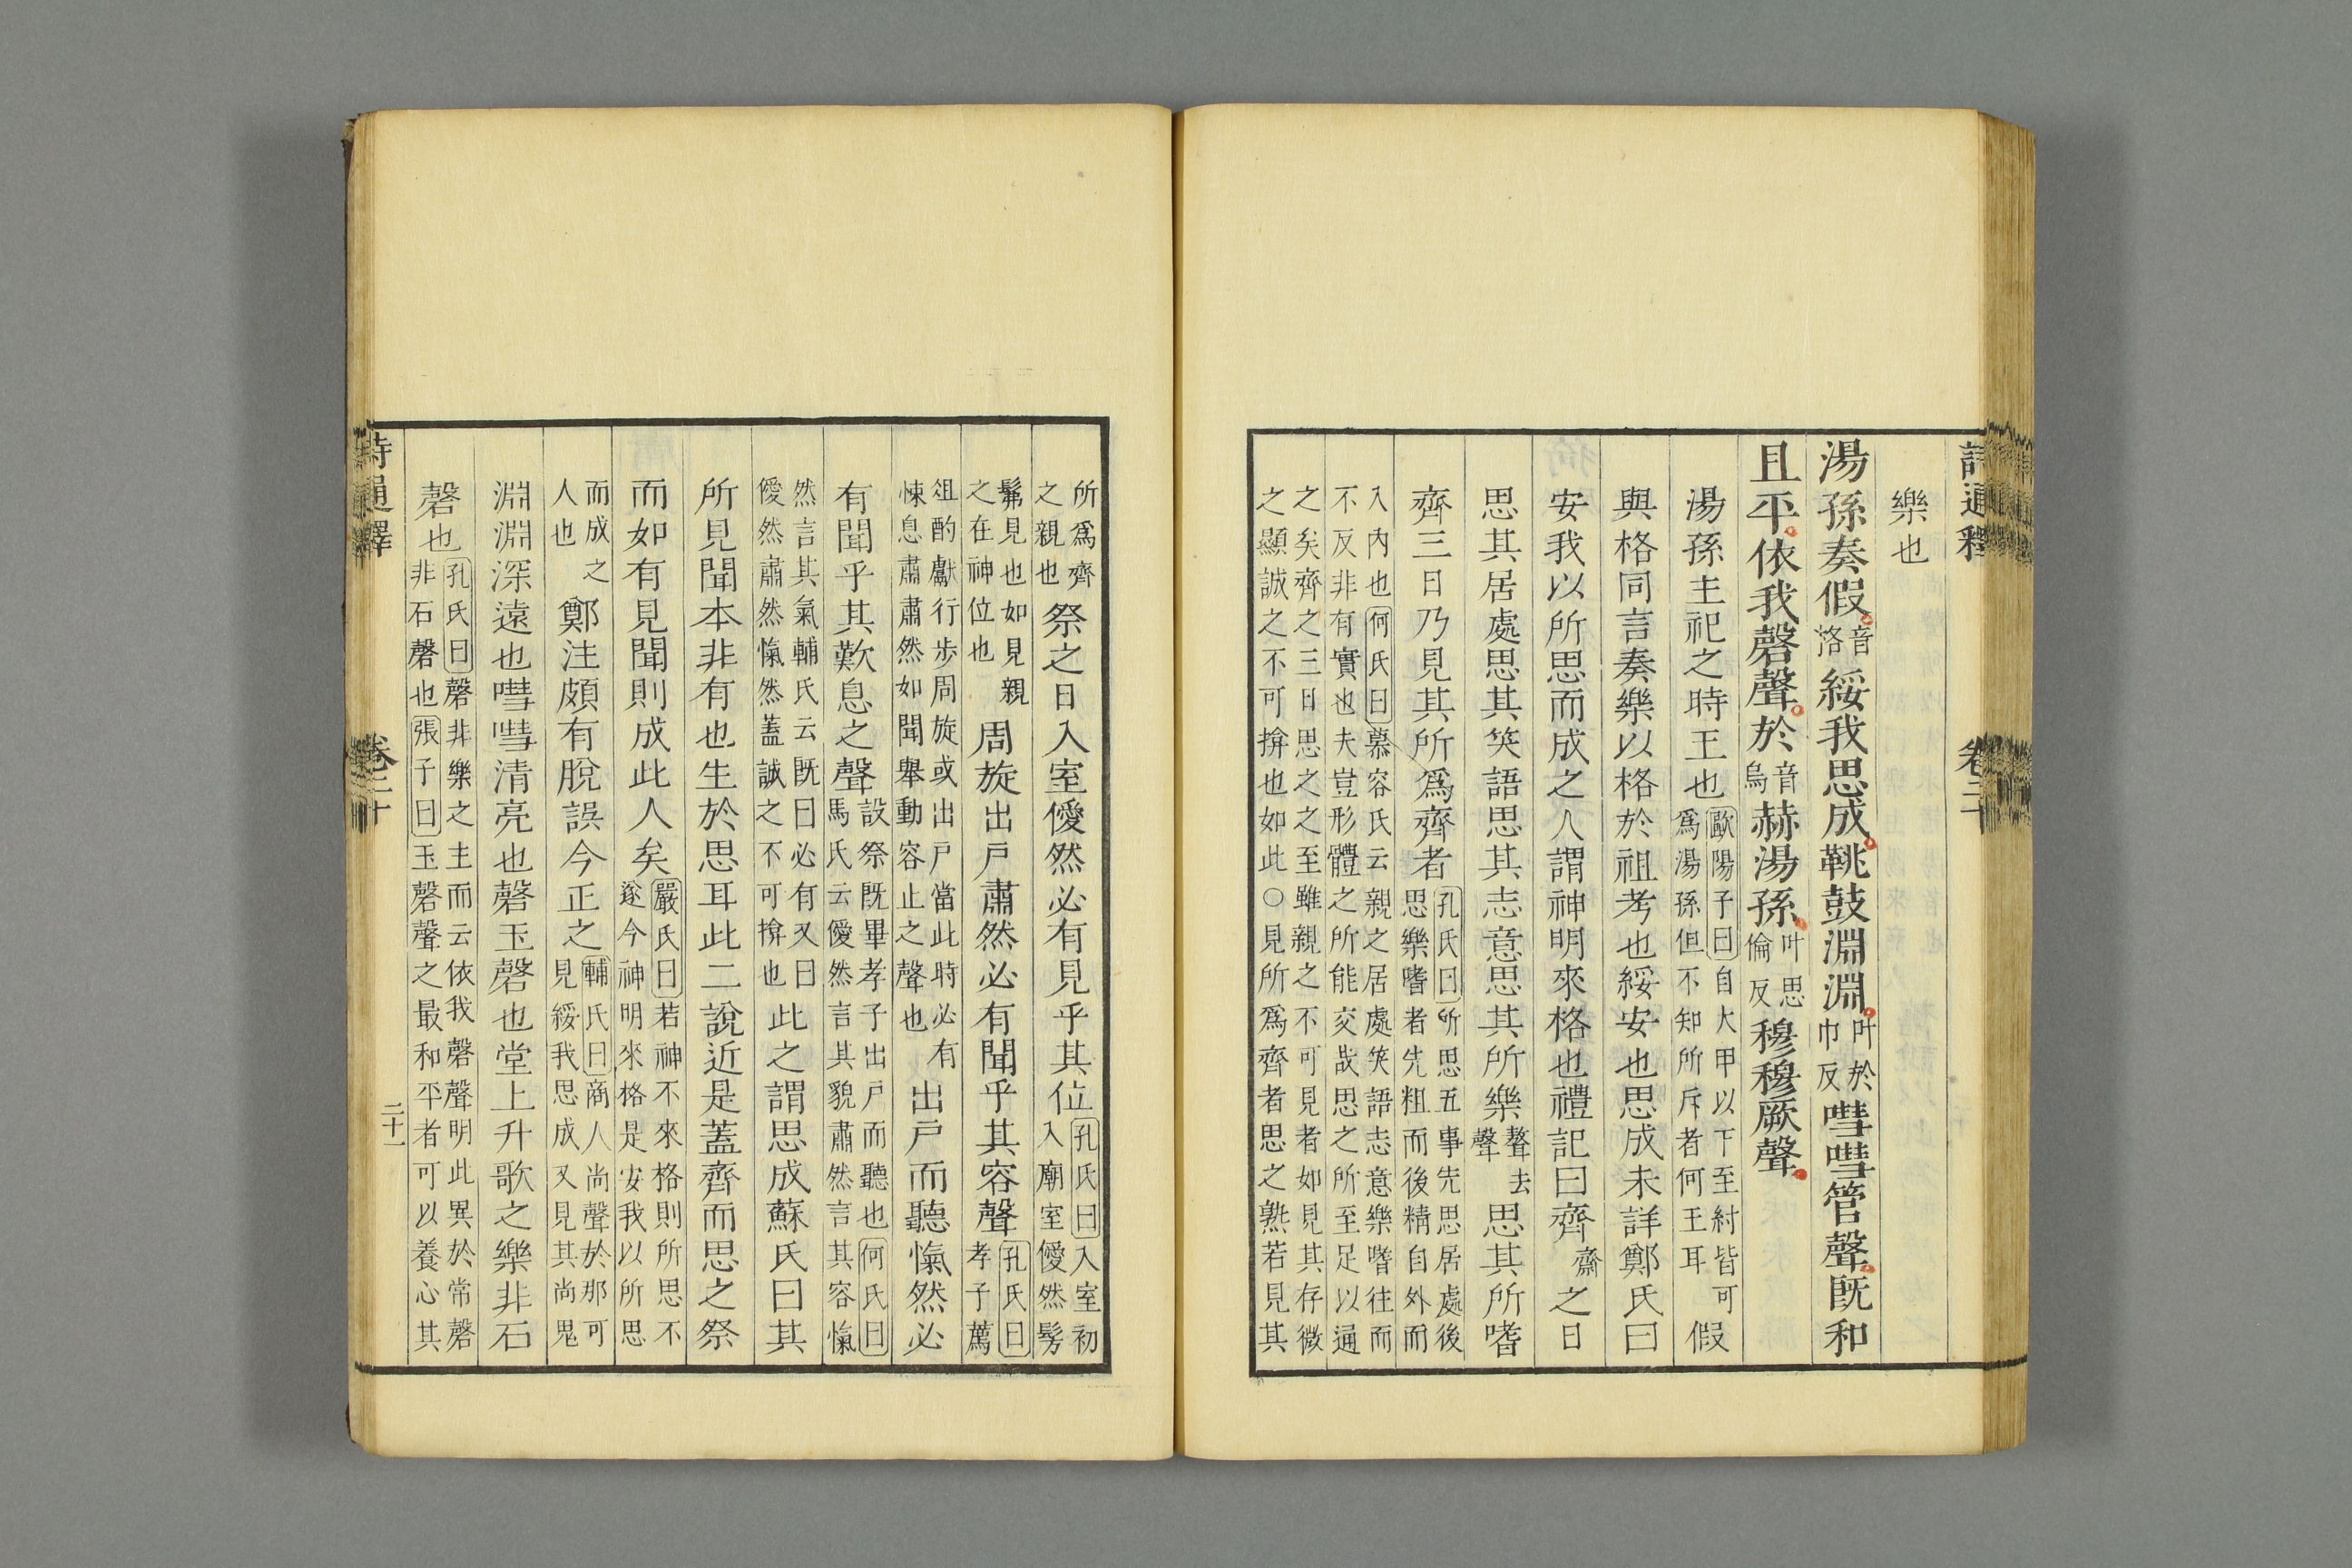 詩通釋 卷二十
樂也
湯孫奏假音洛綏我思成鞉鼓淵淵叶於巾反嘒嘒管聲既和
且平依我磬聲於音烏赫湯孫叶思倫反穆穆厥聲
湯孫主祀之時王也歐陽子曰自大甲以下至紂皆可爲湯孫但不知所斥者何王耳假
與格同言奏樂以格於祖考也綏安也思成未詳鄭氏曰
安我以所思而成之人謂神明來格也禮記曰齊齋之日
思其居處思其笑語思其志意思其所樂聱去聲思其所嗜
齊三日乃見其所爲齊者孔氏曰所思五事先思居處後思樂嗜者先粗而後精自外而
入內也何氏曰慕容氏云親之居處笑語志意樂嗜往而不反非有實也夫豈形體之所能交哉思之所至足以通
之矣齊之三日思之之至雖親之不可見者如見其存微之顯誠之不可揜也如此○見所爲齊者思之熟若見其
所爲齊之親也祭之日入室僾然必有見乎其位孔氏曰入室初入廟室僾然髣
髴見也如見親之在神位也周旋出戶肅然必有聞乎其容聲孔氏曰孝子薦
俎酌獻行步周旋或出戶當此時必有悚息肅肅然如聞舉動容止之聲也出戶而聽愾然必
有聞乎其歎息之聲設祭既畢孝子出戶而聽也馬氏云僾然言其貌肅然言其容愾何氏曰
然言其氣輔氏云既曰必有又曰僾然肅然愾然蓋誠之不可揜也此之謂思成蘇氏曰其
所見聞本非有也生於思耳此二說近是蓋齊而思之祭
而如有見聞則成此人矣嚴氏曰若神不來格則所思不遂今神明來格是安我以所思
而成之人也鄭注頗有脫誤今正之輔氏曰商人尚聲於那可見綏我思成又見其尚鬼
淵淵深遠也嘒嘒清亮也磬玉磬也堂上升歌之樂非石
磬也孔氏曰磬非樂之主而云依我磬聲明此異於常磬非石磬也張子曰玉磬聲之最和平者可以養心其
詩通釋 卷二十 二十一